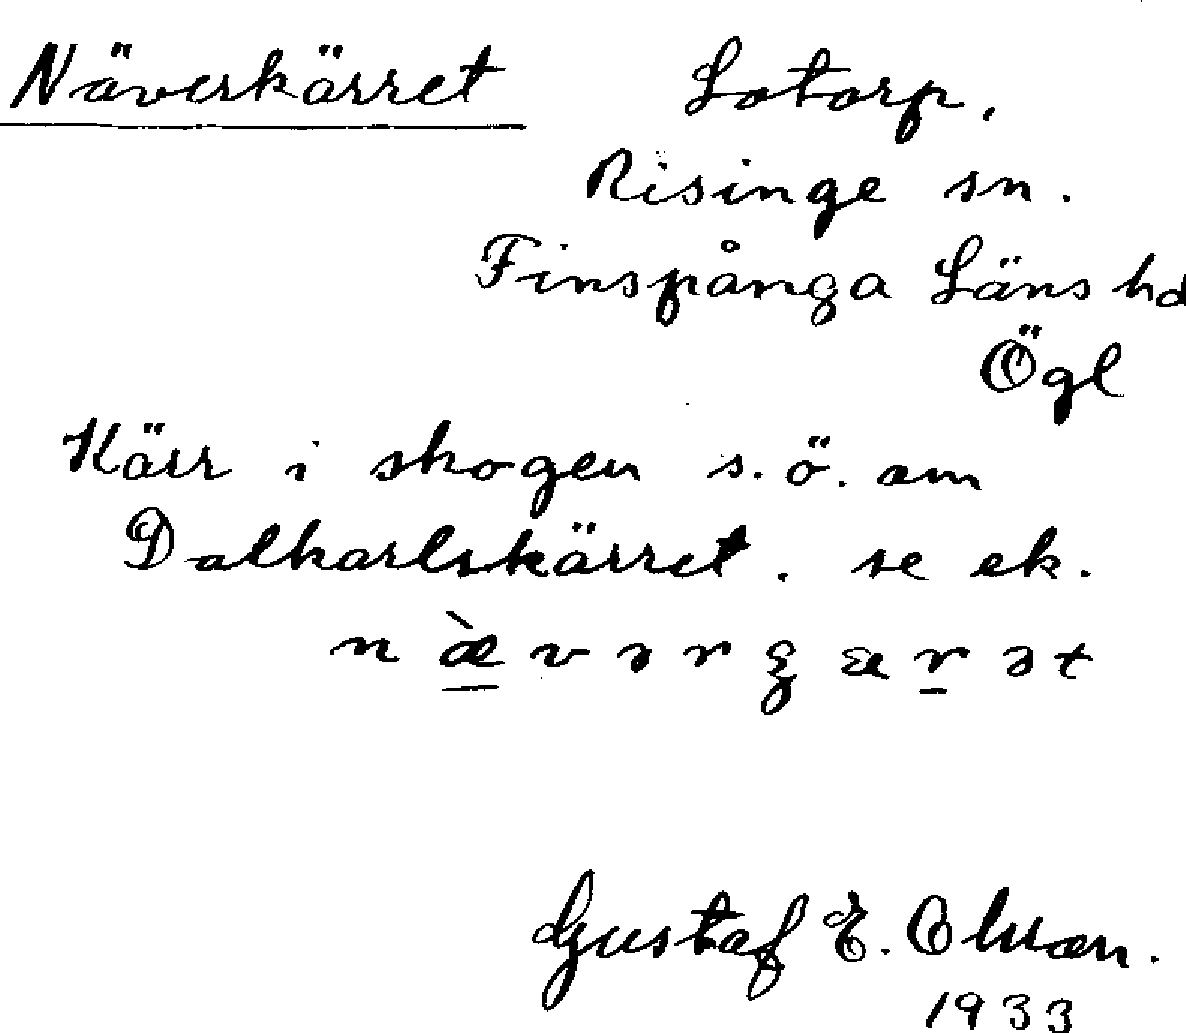 Näverkärret Lotorp.
Risinge sn.
Finspånga Läns hd
Ögl
Kärr i skogen s.ö. om
Dalkarlskärret. se ek.
næ̀vərgærət
Gustaf E. Olsson.
1933